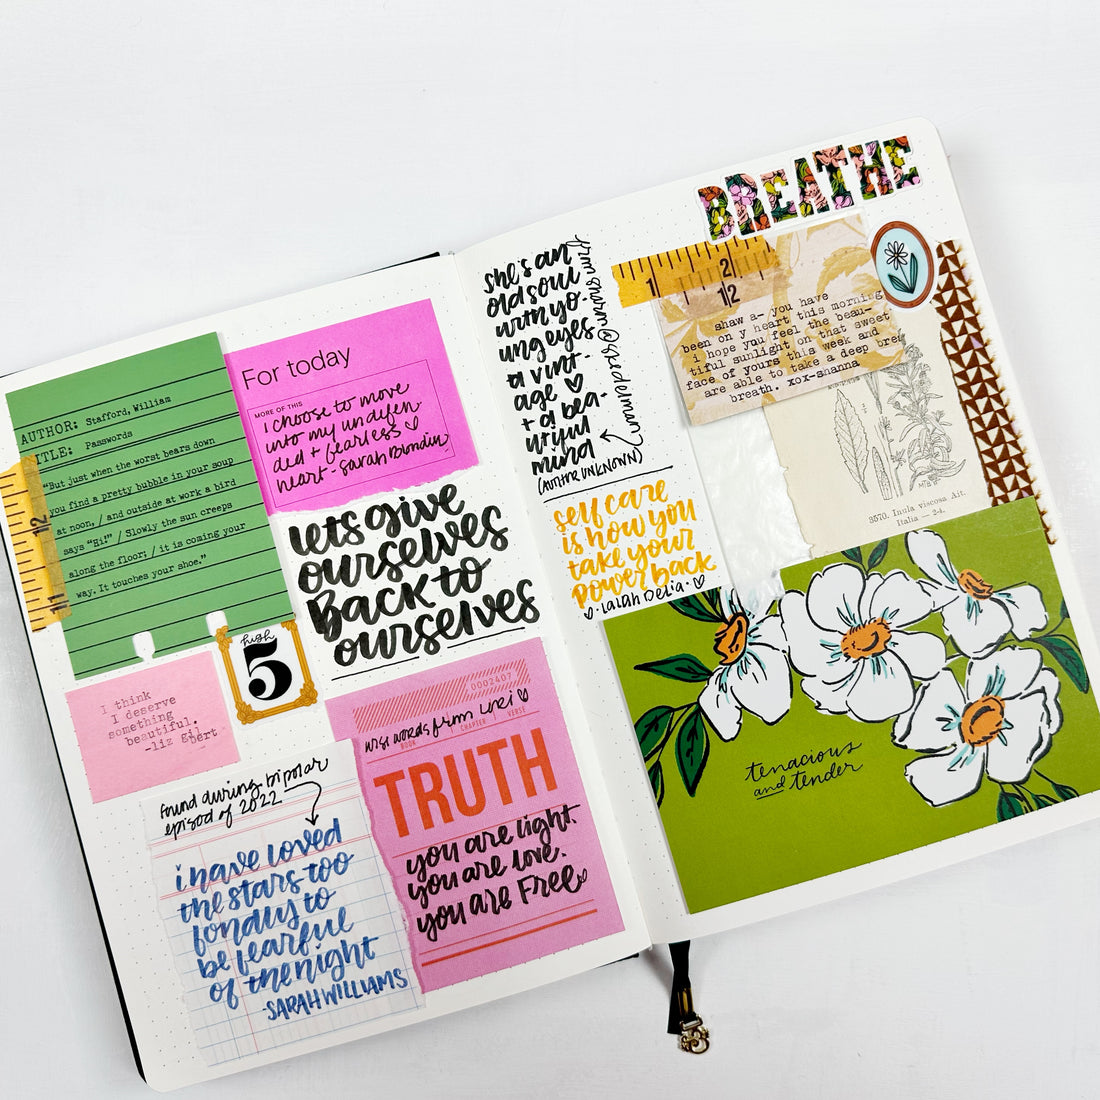 AUTHOR: Stafford, William
TITLE: Passwords
"But just when the worst bears down
you find a pretty bubble in your soup
at noon, / and outside at work a bird
says "Hi!" / Slowly the sun creeps
along the floor; / it is coming your
way. It touches your shoe."
12
11
For today
MORE OF THIS
I choose to move
into my undefen-
ded + fearless
heart - Sarah Blondin
lets give
ourselves
back to
ourselves
high
5
I think
I deserve
something
beautiful.
-liz gilbert
found during bipolar
episod of 2022
i have loved
the stars too
fondly to
be fearful
of the night
-SARAH WILLIAMS
0002407
wise words from
BOOK
CHAPTER
VERSE
TRUTH
you are light.
you are love.
you are Free
she's an
old soul
with yo-
ung eyes
a vint-
age
+ a bea-
utiful
mind
(AUTHOR UNKNOWN)
self care
is how you
take your
power back
· Lalah Delia ·
BREATHE
1
2
12
shaw a- you have
been on y heart this morning
i hope you feel the beau-
tiful sunlight on that sweet
face of yours this week and
are able to take a deep
breath. xox-shanna
3570. Inula viscosa Ait.
Italia — 24.
tenacious
and tender